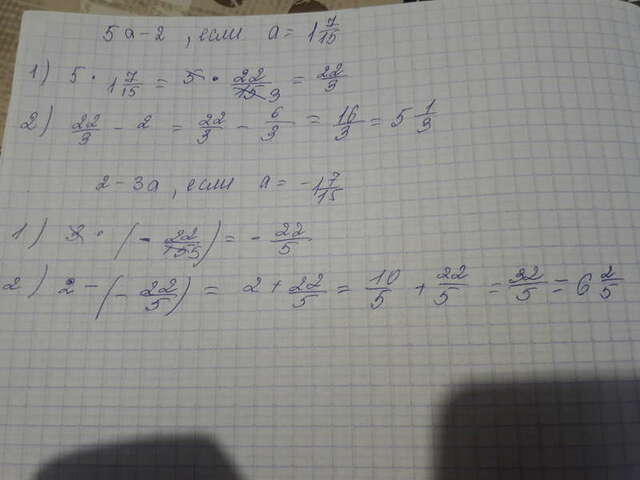 5a-2, если a = 1 7/15
1) 5 · 1 7/15 = 5 · 22/15 3 = 22/3
2) 22/3 - 2 = 22/3 - 6/3 = 16/3 = 5 1/3
2-3a, если a = -1 7/15
1) 3 · (- 22/15 5) = - 22/5
2) 2 - (- 22/5) = 2 + 22/5 = 10/5 + 22/5 = 32/5 = 6 2/5